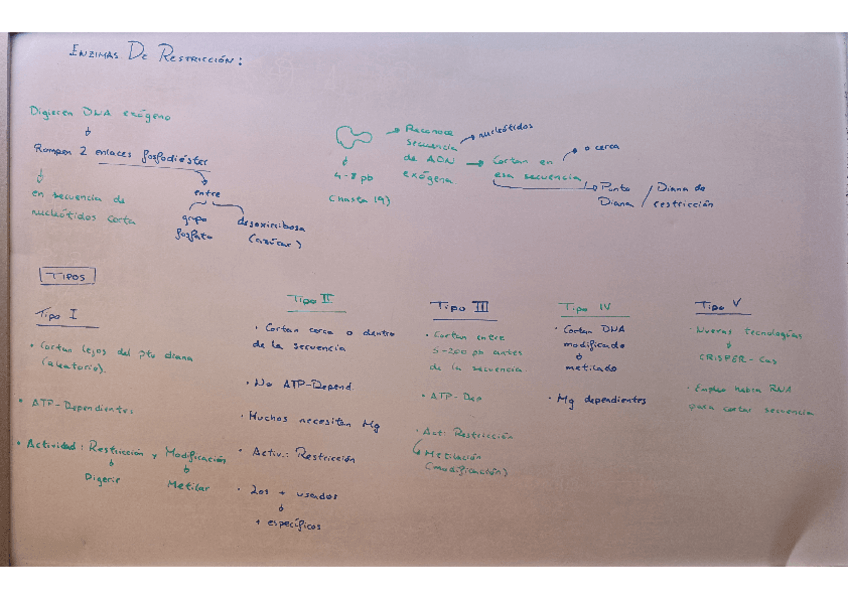 ENZIMAS DE RESTRICCIÓN:
Digieren DNA exógeno
Rompen 2 enlaces fosfodiéster
en secuencia de
nucleótidos corta
entre
grupo
fosfato
desoxirribosa
(azúcar)
4-8 pb
(hasta 19)
Reconoce
secuencia
de ADN
exógena
nucleótidos
Cortan en
esa secuencia
o cerca
Punto
Diana
/ Diana de
/ restricción
TIPOS
Tipo I
• Cortan lejos del pto diana
(aleatorio).
• ATP-Dependientes
• Actividad: Restricción y Modificación
Digerir
Metilar
Tipo II
• Cortan cerca o dentro
de la secuencia
• No ATP-Depend.
• Muchos necesitan Mg
• Activ.: Restricción
• Los + usados
+ específicos
Tipo III
• Cortan entre
5-200 pb antes
de la secuencia
• ATP-Dep
• Act: Restricción
Metilación
(modificación)
Tipo IV
• Cortan DNA
modificado
o
metilado
• Mg dependientes
Tipo V
• Nuevas tecnologías
CRISPER-Cas
• Emplea RNA
para cortar secuencia